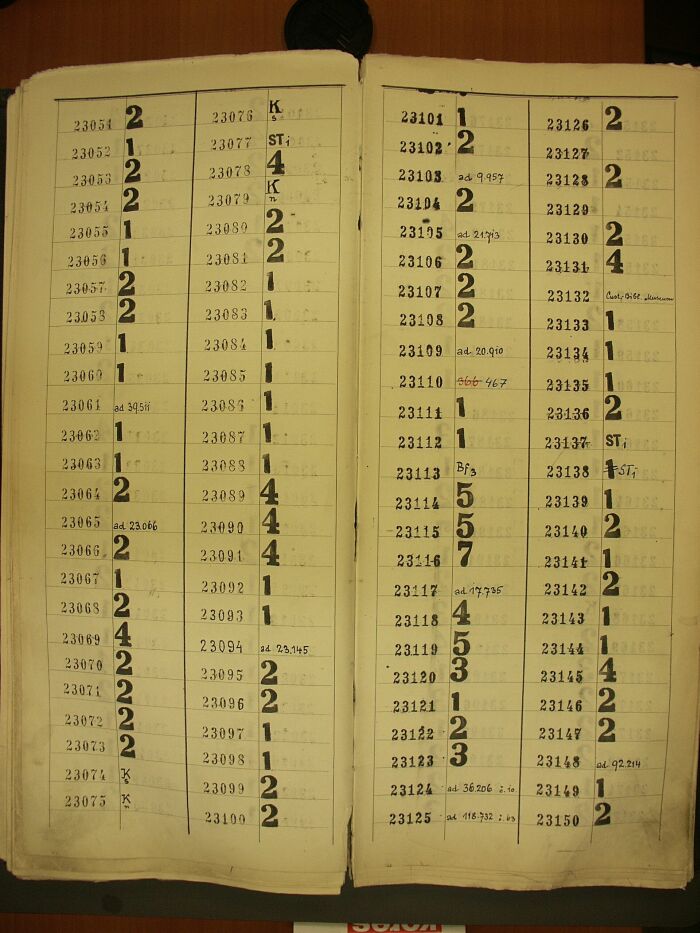 23051 2
23052 1
23053 2
23054 2
23055 1
23056 1
23057 2
23058 2
23059 1
23060 1
23061 ad 39.511
23062 1
23063 1
23064 2
23065 ad 23.066
23066 2
23067 1
23068 2
23069 4
23070 2
23071 2
23072 2
23073 2
23074 K
23075 K
23076 K s
23077 STi
23078 4
23079 K n
23080 2
23081 2
23082 1
23083 1
23084 1
23085 1
23086 1
23087 1
23088 1
23089 4
23090 4
23091 4
23092 1
23093 1
23094 ad 23.145
23095 2
23096 2
23097 1
23098 1
23099 2
23100 2
23101 1
23102 2
23103 ad 9.957
23104 2
23105 ad 21.713
23106 2
23107 2
23108 2
23109 ad 20.910
23110 366 467
23111 1
23112 1
23113 Bf3
23114 5
23115 5
23116 7
23117 ad 17.735
23118 4
23119 5
23120 3
23121 1
23122 2
23123 3
23124 ad 36.206 i.10
23125 ad 118.732 i.63
23126 2
23127
23128 2
23129
23130 2
23131 4
23132 Cust. Bibl. Museum
23133 1
23134 1
23135 1
23136 2
23137 STi
23138 1 STi
23139 1
23140 2
23141 1
23142 2
23143 1
23144 1
23145 4
23146 2
23147 2
23148 ad 92.214
23149 1
23150 2